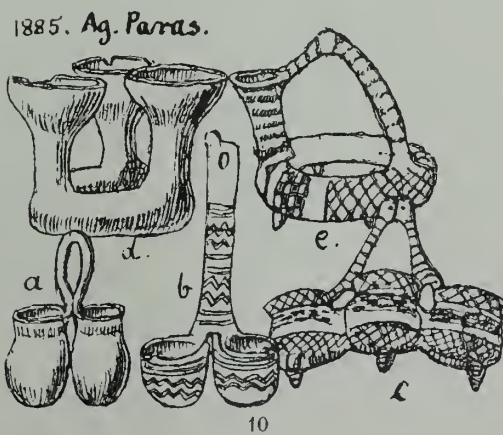 1885. Ag. Paras.
d.
e.
a
b
c
10